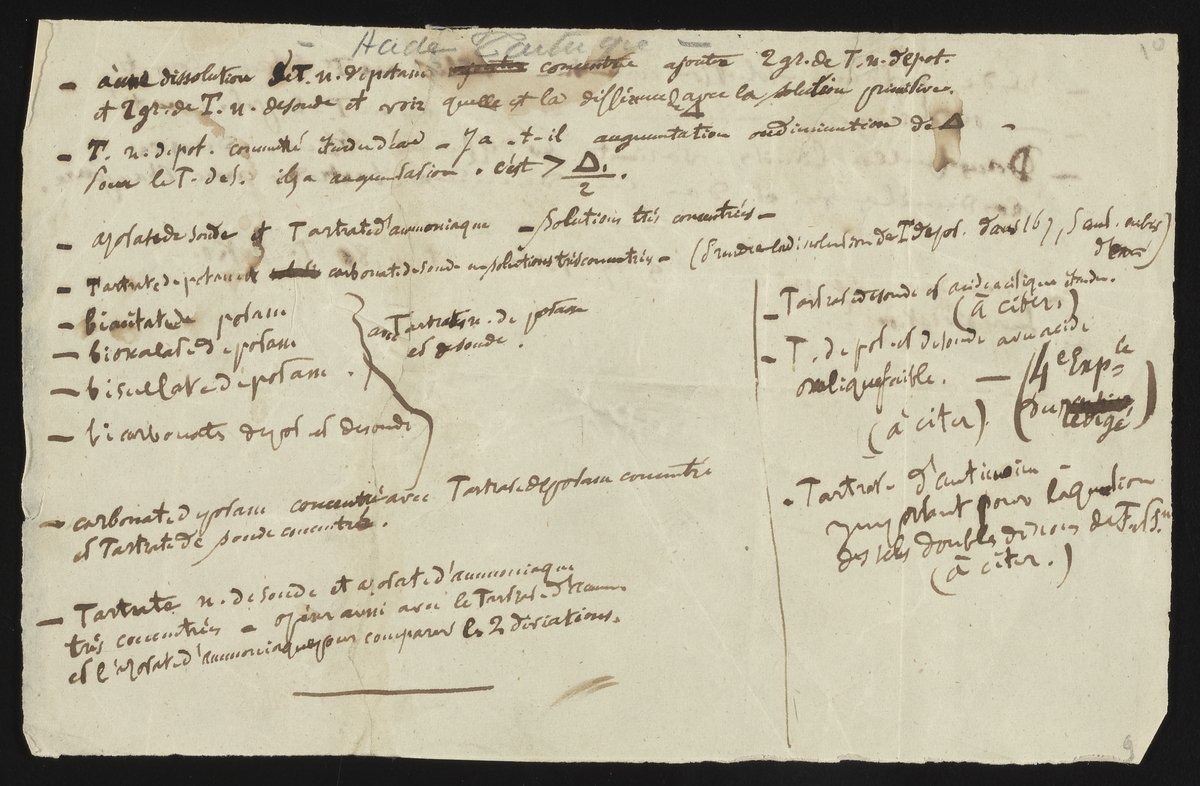 Acide Tartrique
10
- à une dissolution de T. n. de potasse concentrée ajouter 2 gr. de T. n. de pot.
et 2 gr. de T. n. de soude et voir quelle est la différence avec la solution primitive.
- T. n. de pot. concentré étendu d'eau - y a-t-il augmentation ou diminution de Δ -
Pour le T. de S. il y a augmentation. c'est > Δ1/2.
- azotate de soude et Tartrate d'ammoniaque - solutions très concentrées -
- Tartrate de potasse et carbonate de soude en solutions très concentrées - (Prendre la dissolution de T de pot. dans 167, 5 cent. cubes
d'eau)
- biacétate de potasse
- bioxalate de potasse
- bisulfate de potasse.
- bicarbonates de pot. et de soude
avec Tartrates n. de potasse
et de soude.
- carbonate de potasse concentré avec Tartrate de potasse concentré
et Tartrate de soude concentré.
- Tartrate n. de soude et azotate d'ammoniaque
très concentrés - opérer aussi avec le Tartrate d'amm.
et l'azotate d'ammoniaque pour comparer les 2 déviations.
- Tartrate de soude et acide acétique étendu.
(à citer.)
- T. de pot. et de soude avec acide
oxalique faible. - (4e Expce
du rédigé)
(à citer).
- Tartrate d'antimoine
important pour la question
des sels doubles de nous de T. et S.
(à citer.)
9